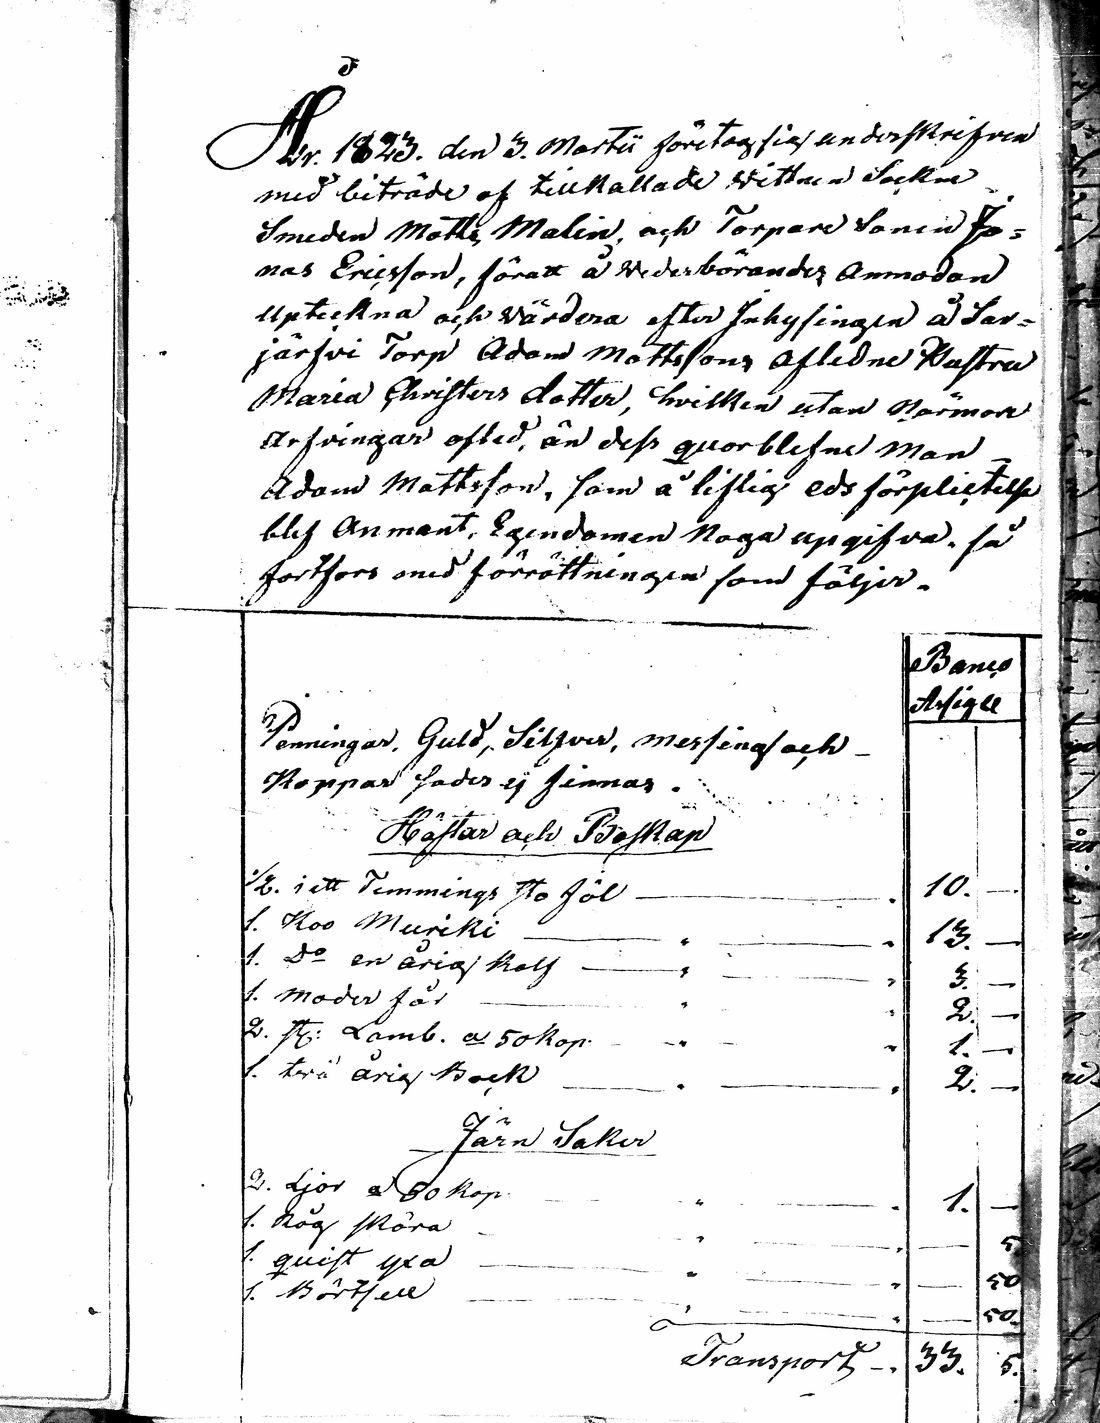 År. 1823. den 3. Martii företog sig underskrifven
med biträde af tillkallade Wittnen Sockne
Smeden Matts Malin, och Torpare Sonen Jo=
nas Ericsson, föratt å Wederbörandes Anmodan
Upteckna och Värdera efter Inhysingen å Sar=
järfvi Torp Adam Mattssons Afledne Hustru
Maria Christers dotter, hvilken utan Närmare
Arfvingar afled, än dess quorblefne Man
Adam Mattsson, som å liflig eds förplictelse
blef Anmant, Egendomen Noga upgifva. så
fortfors med förrättningen som följer.
Banco
Assigll
Penningar, Guld, Silfver, Messing och
Koppar sades ej finnas.
Hästar och Boskap
1/2. i ett Temmings sto föl 10. —
1. Koo Muriki 13. —
1. Do en årig Kalf 3. —
1. Moder får 2. —
2. st: Lamb. a 50 Kop. 1. —
1. två årig Bock 2. —
Järn Saker
2. Ljor a 50 Kop 1. —
1. Råg skära — 5.
1. quist yxa — 50
1. Bört — 50.
Transport 33. 5.